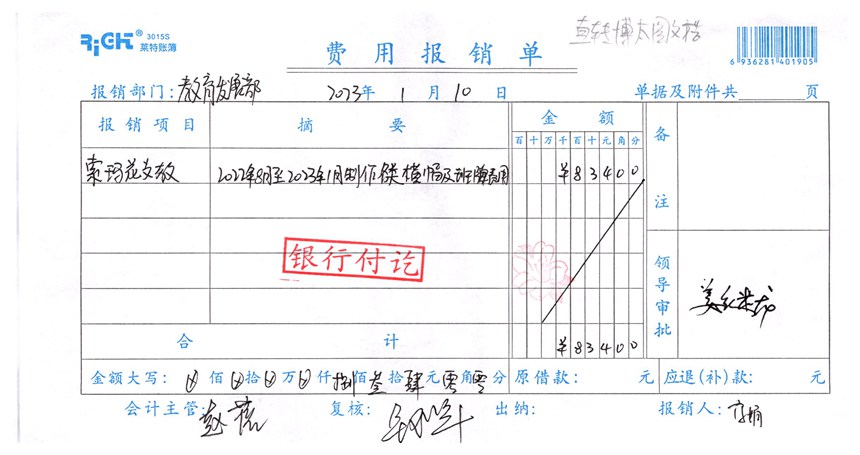 RiCH® 3015S
莱特账簿
直转博太图文档
费用报销单
6 936281 401905
报销部门: 教育发展部 2023年 1月10日 单据及附件共 页
报销项目 摘要 金额 备注
百十万千百十元角分
索玛花支教 2022年8月至2023年1月制作锦旗横幅及班牌费用 ¥83400
银行付讫
领导审批
合计 ¥83400
金额大写: 0佰0拾0万0仟捌佰叁拾肆元零角零分 原借款: 元 应退(补)款: 元
会计主管: 复核: 出纳: 报销人: